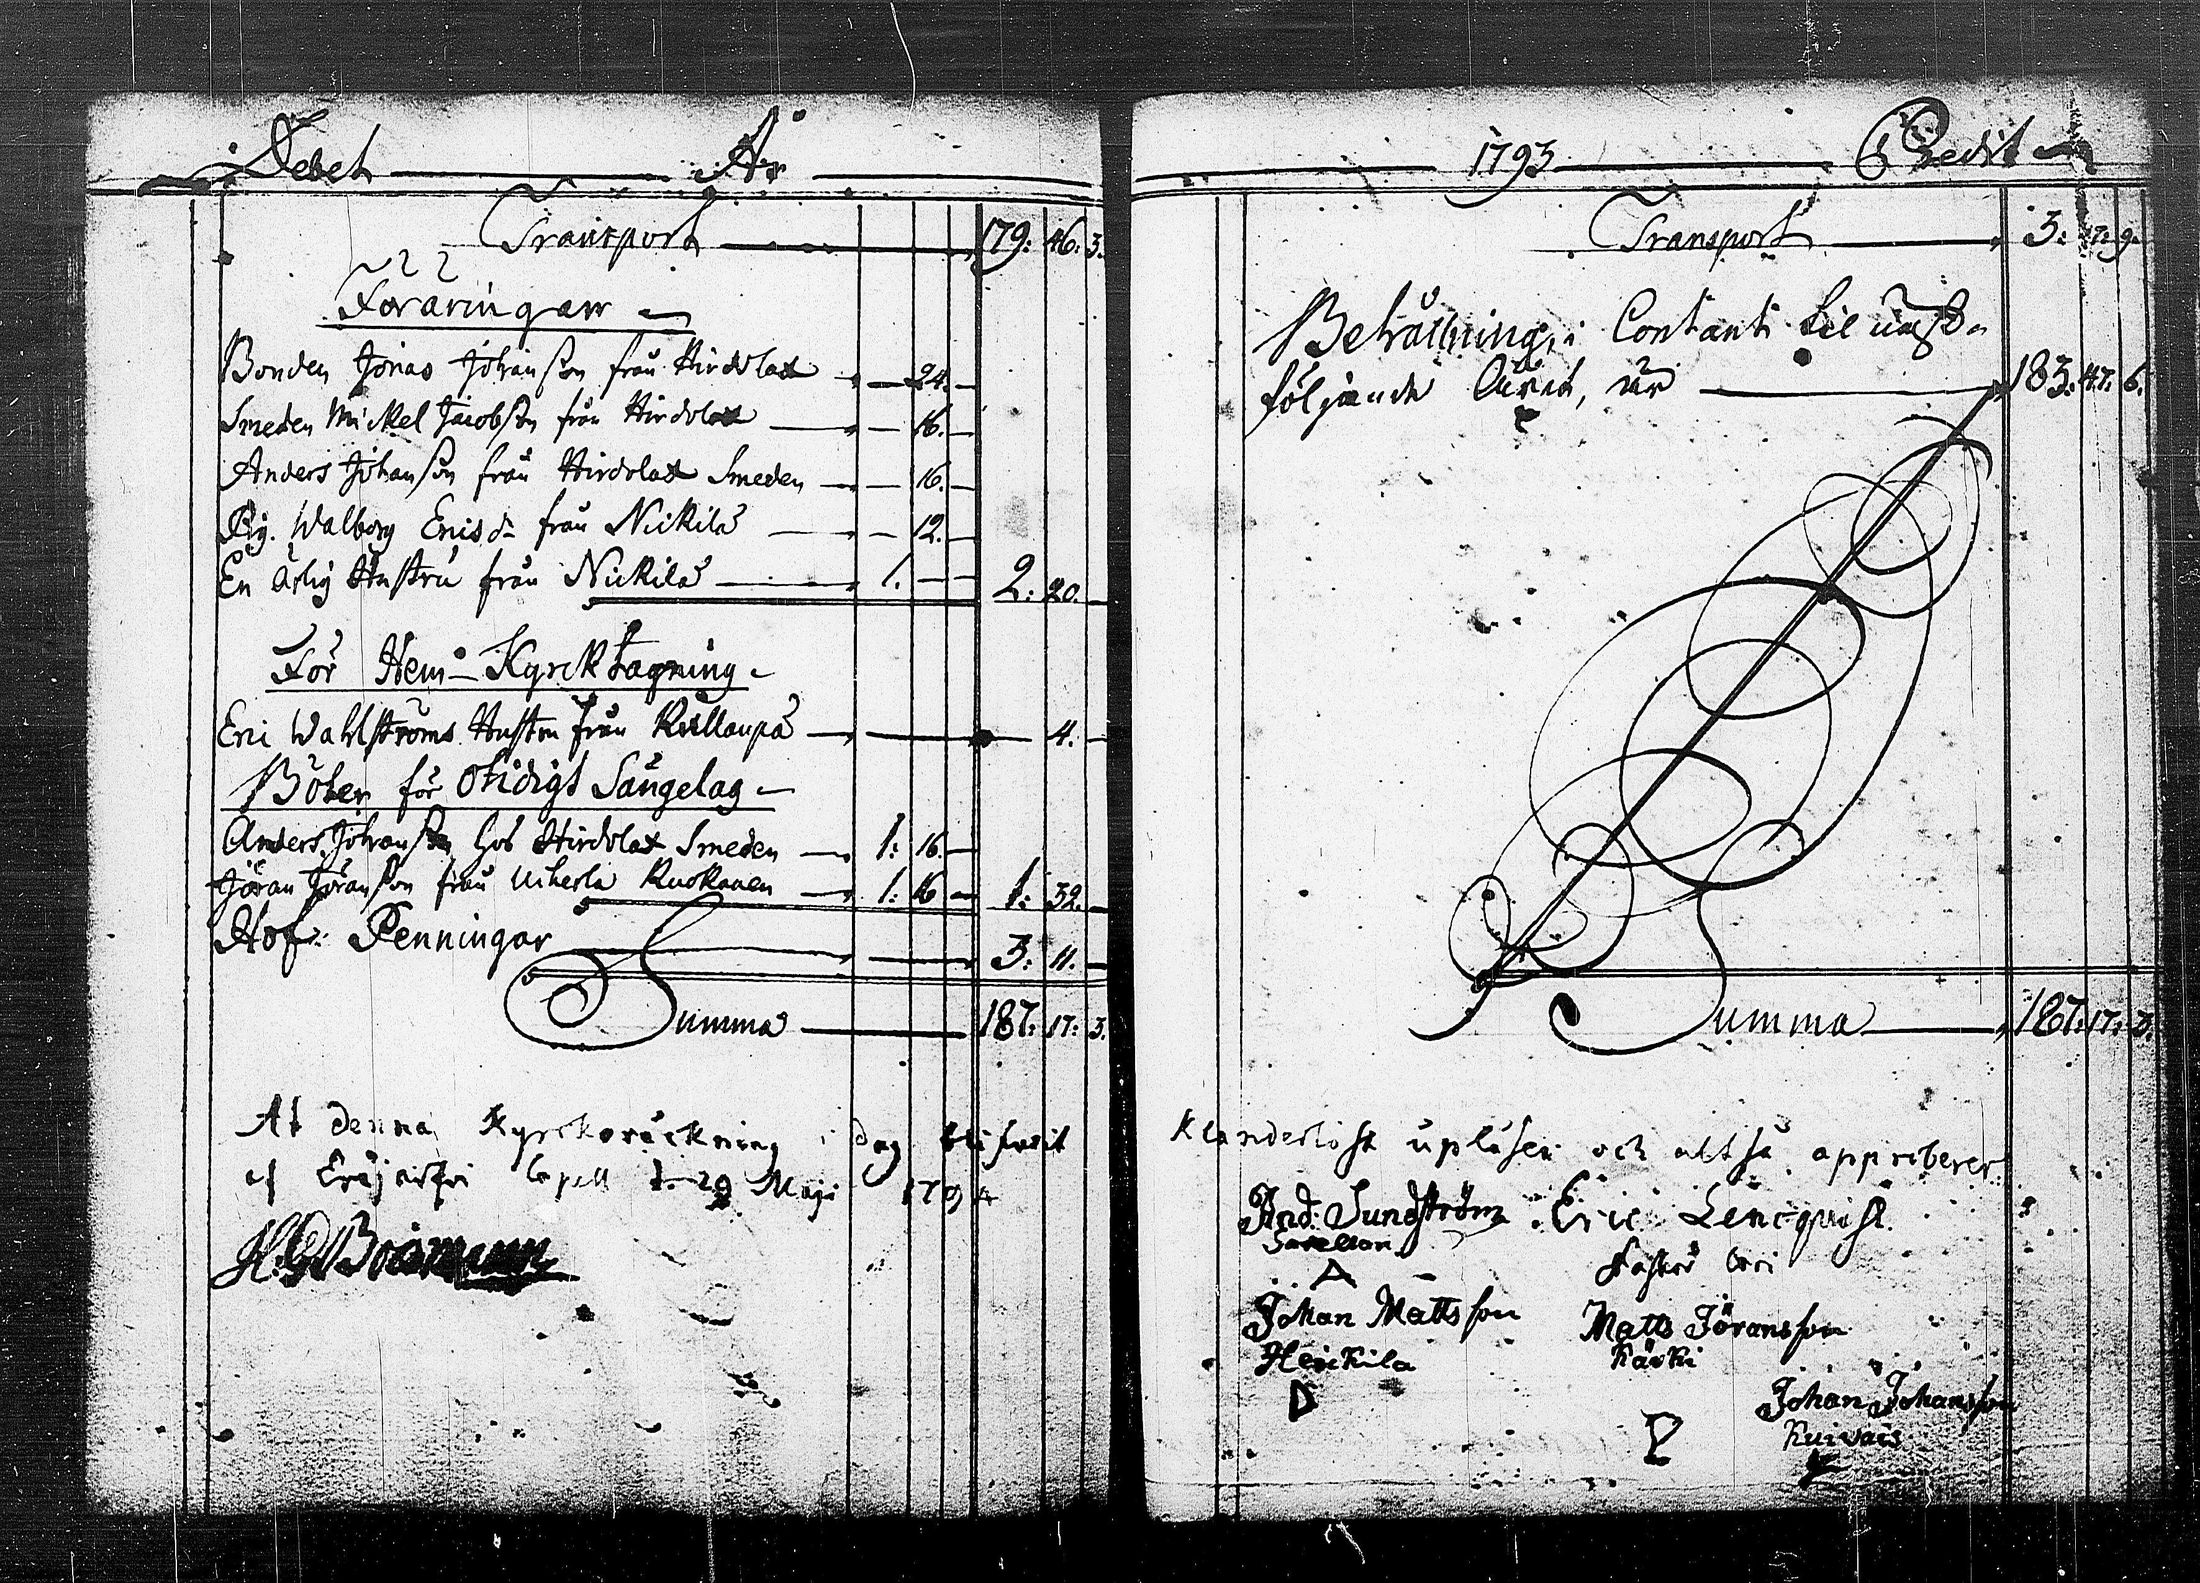 Debet År
Transport 179: 46: 3.
Föräringar
Bonden Jonas Johansson från Hirdolax — 24. —
Smeden Mickel Jacobsson från Hirdolax — 16. —
Anders Johansson från Hirdolax Smeden — 16. —
Pig. Walborg Ericsd. från Nickilä — 12. —
En ärlig Hustru från Nickilä 1. — — 2: 20. —
För Hem-Kyrcktagning
Eric Wahlströms Hustru från — 4. —
Böter för otidigt Sängelag
Anders Johansson hos Hirdolax Smeden 1: 16. —
Jöran Jöransson från Uiherla Ruokanen 1: 16 — 1: 32. —
Hof: Penningar 3: 11. —
Summa 187: 17: 3.
At denna Kyrckoräckning i dag blifvit
Capell d. 29 Maji 1794
1793 Credit
Transport 3: 17: 9.
Behållning, i Contant til näst
följande året, är 183: 47: 6.
Summa 187: 17: 3.
Klanderlöst upläsen och altså approberer
And: Sundström Eric Lencqvist
Johan Mattsson Matts Jöransson
Heickila Käcki
Johan Johansson
Kuivais